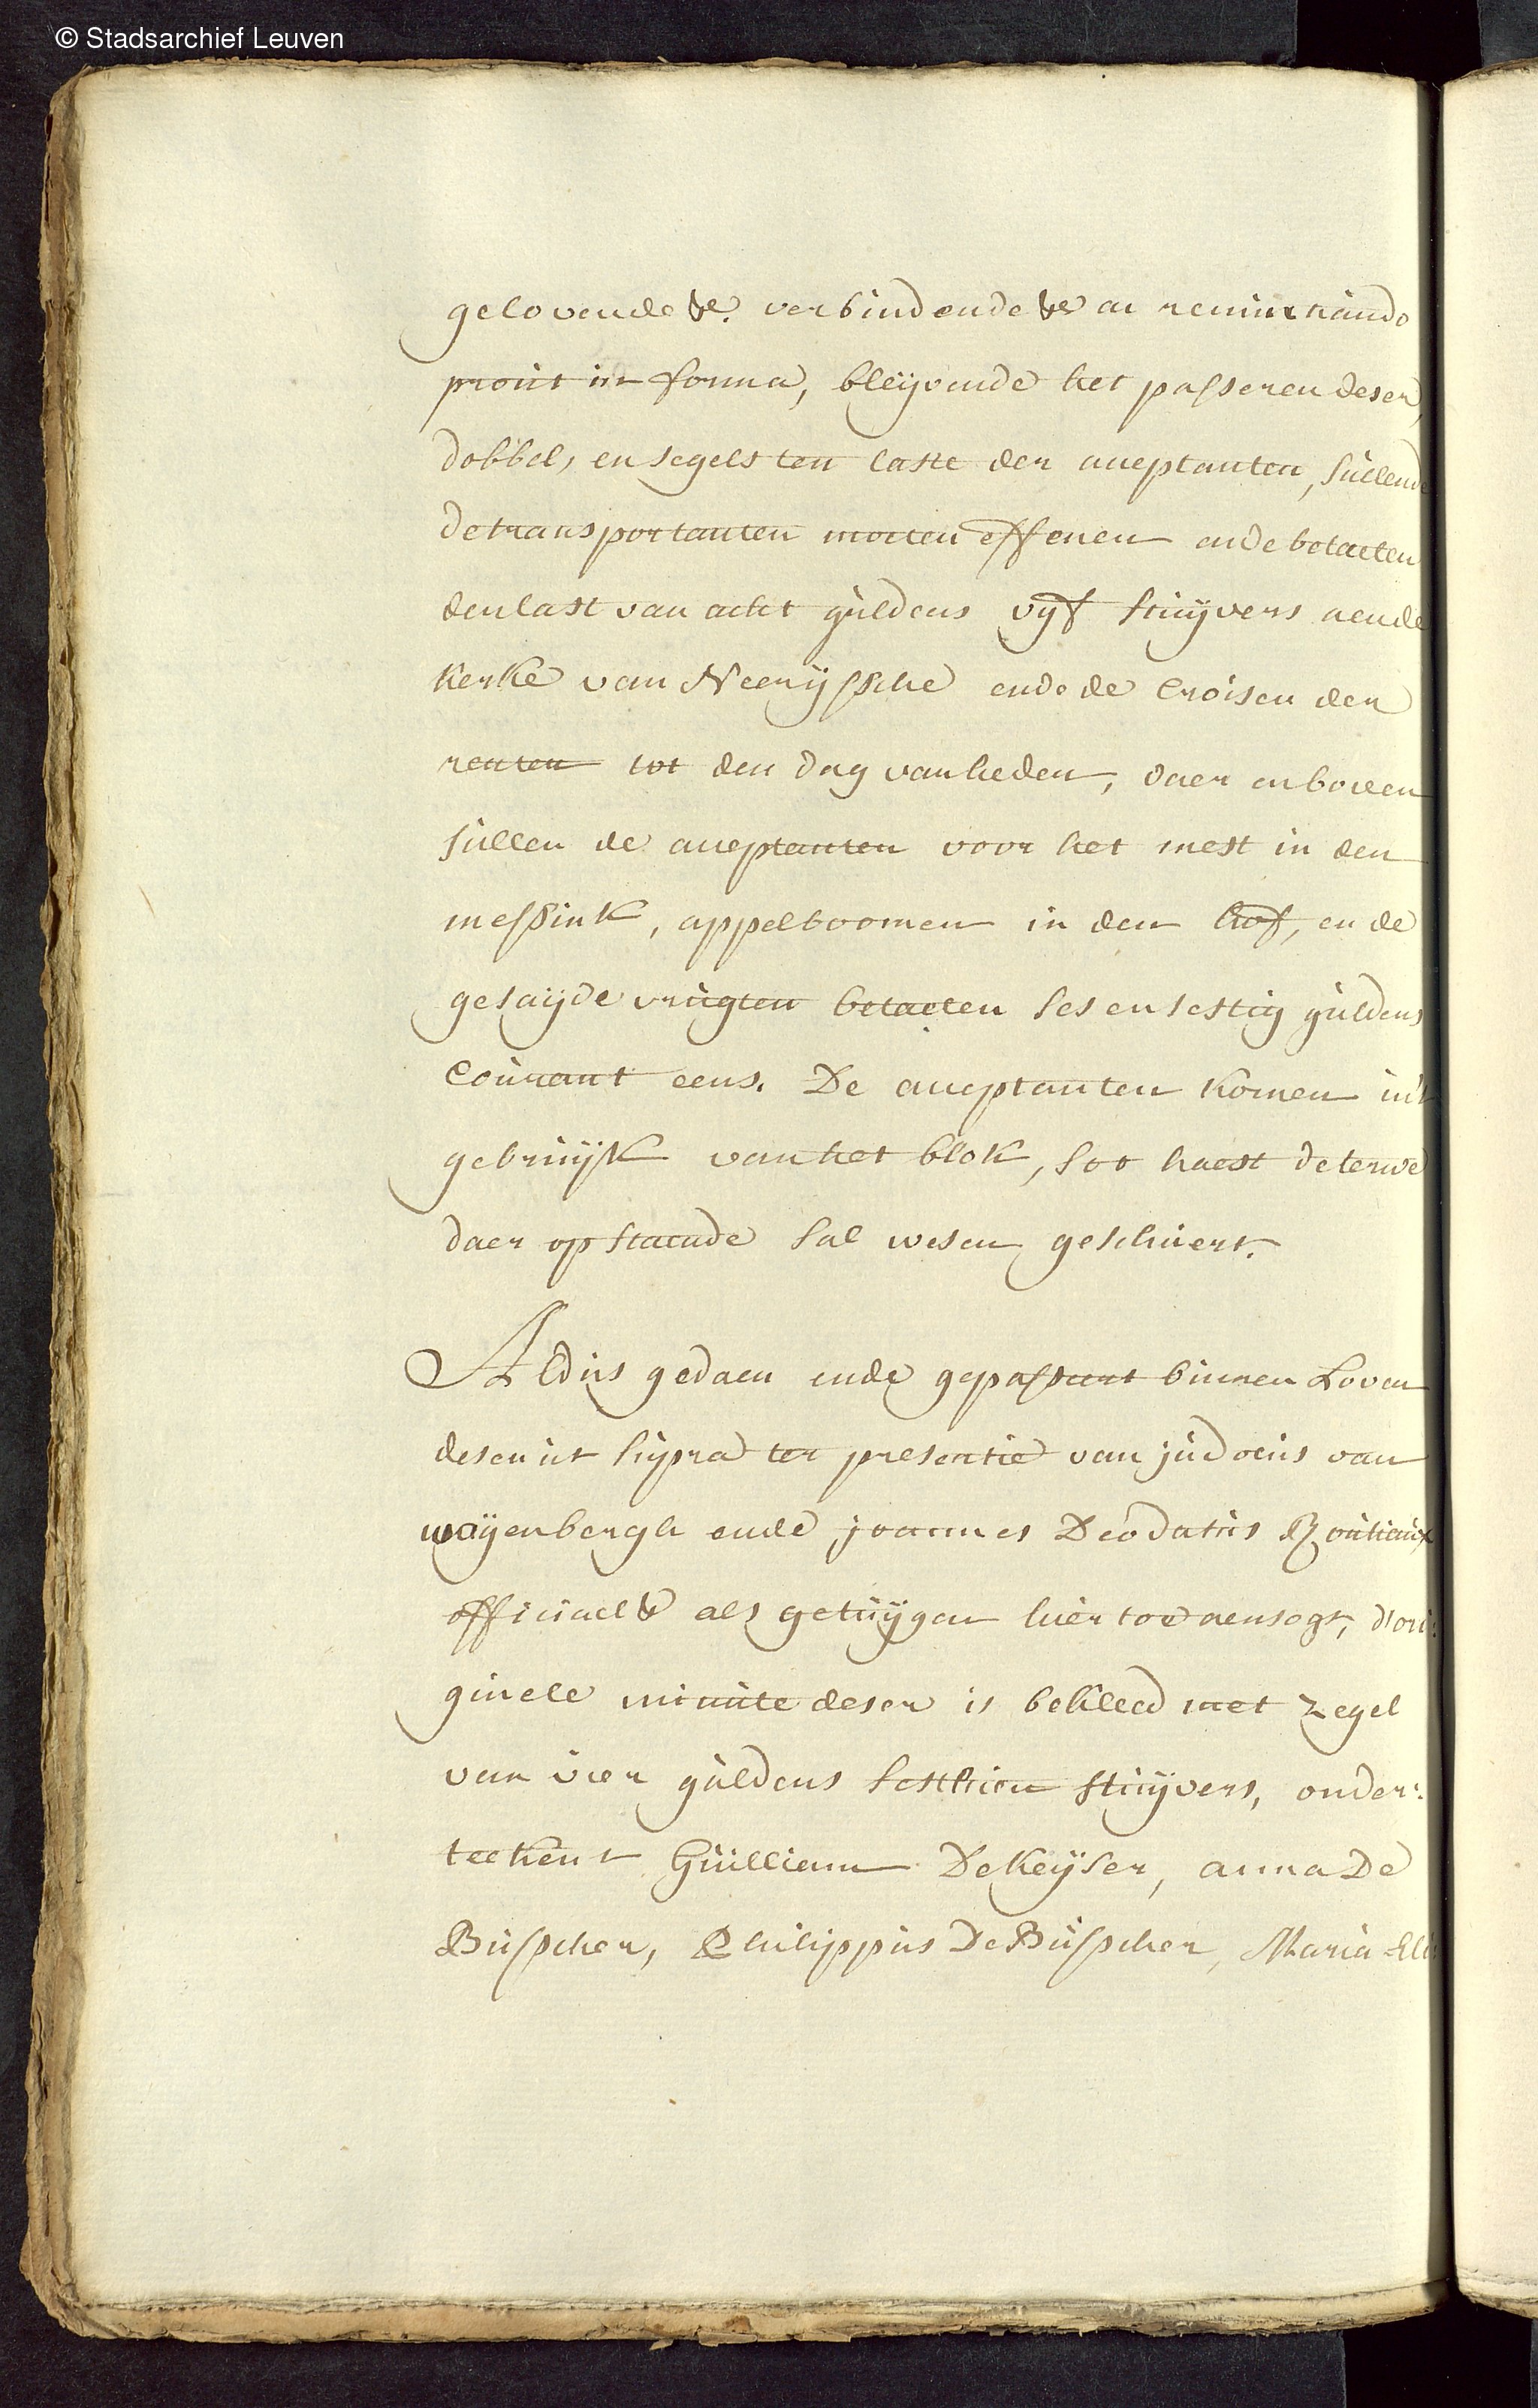 © Stadsarchief Leuven
gelovende &c. verbindende &c en renuntiando
prout in forma, bleijvende het passeren deser,
dobbel, en segels ten laste der acceptanten, sullende
de transportanten moeten effenen ende betaelen
den last van acht guldens vijf stuijvers aende
kerke van Neerijssche ende de croisen der
renten tot den dag van heden, daer en boven
sullen de acceptanten voor het mest in den
messink, appelboomen in den hof, en de
gesaijde vrugten betaelen ses en sestig guldens
courant eens. De acceptanten komen in't
gebruijk van het blok, soo haest de terwe
daer op staende sal wesen geschuert.
Aldus gedaen ende gepasseert binnen Loven
desen ut supra ter presentie van judocus van
waijenbergh ende joannes Deodatus
officiael &c als getuijgen hier toe aensogt, d'ori:
ginele minute deser is bekleed met zegel
van vier guldens sesthien stuijvers, onder:
teekent Guilliam De Keijser, anna De
Busscher, Philippus De Busscher, Maria Eli